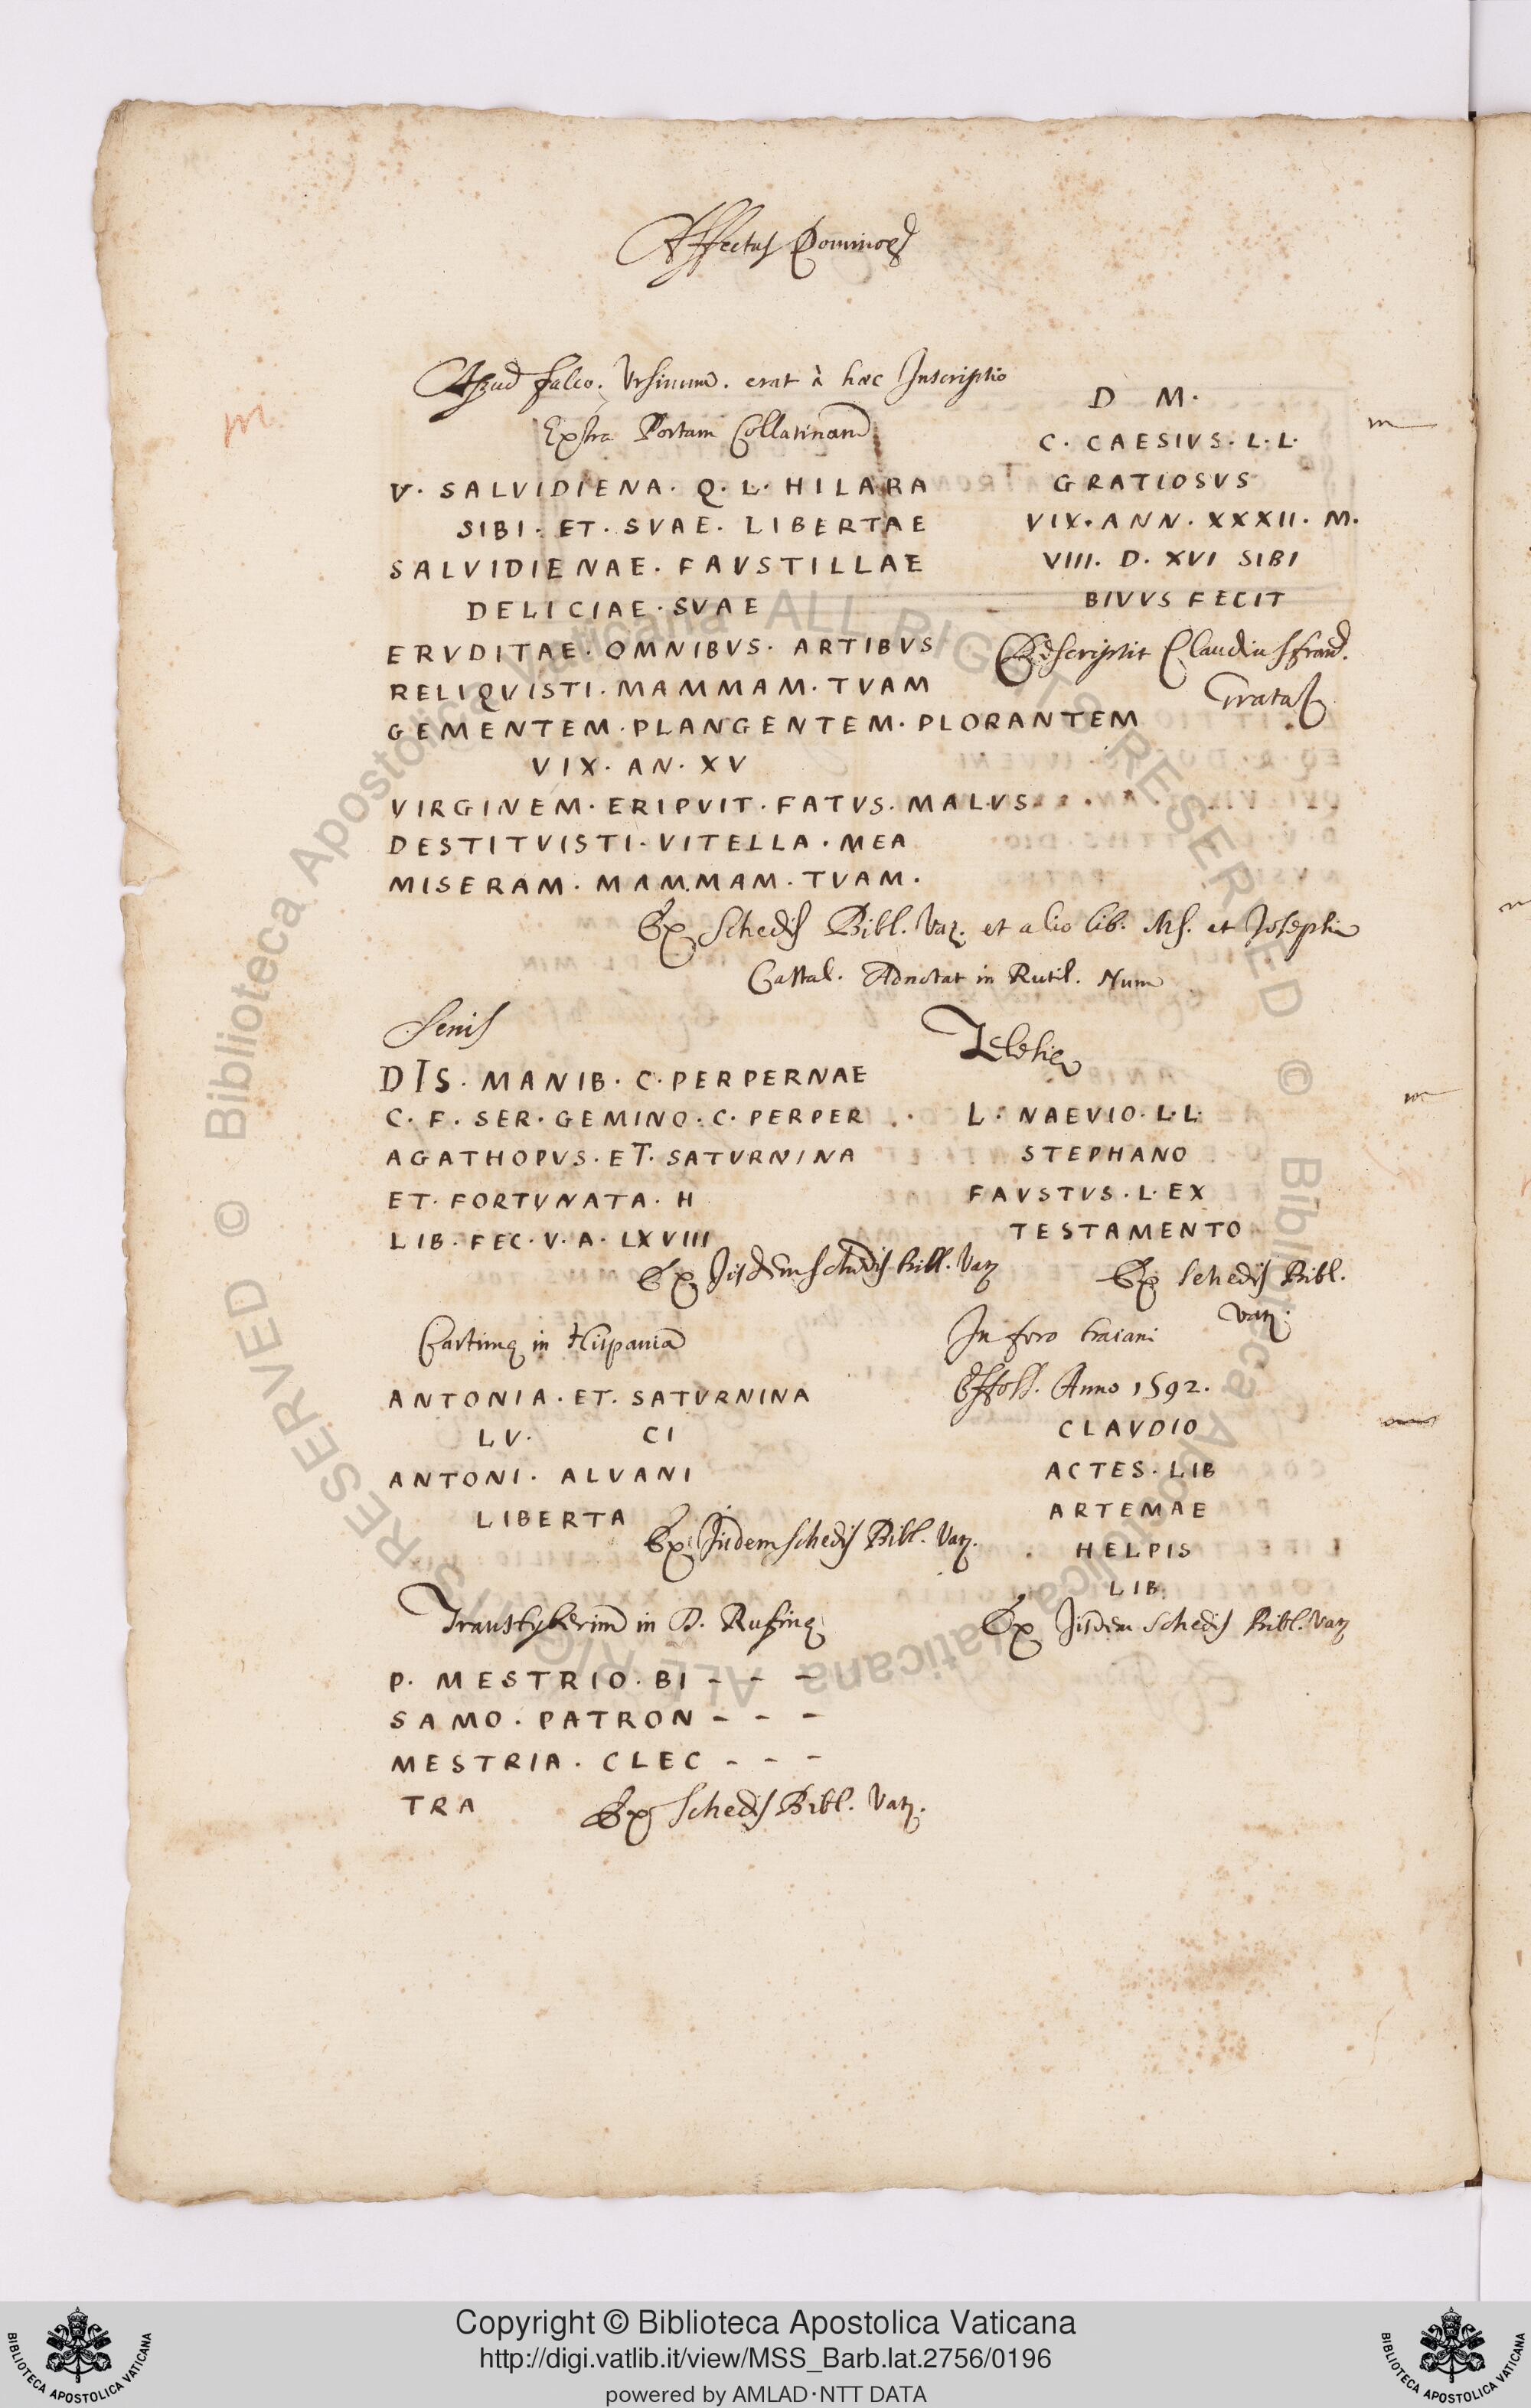 Affectus Dominor
m
Apud falco. Vrsinum. erat à haec Inscriptio
Extra Portam Collatinam
V. SALVIDIENA. Q. L. HILARA
SIBI. ET. SVAE. LIBERTAE
SALVIDIENAE. FAVSTILLAE
DELICIAE. SVAE
ERVDITAE. OMNIBVS. ARTIBVS
RELIQVISTI. MAMMAM. TVAM
GEMENTEM. PLANGENTEM. PLORANTEM
VIX. AN. XV
VIRGINEM. ERIPVIT. FATVS. MALVS
DESTITVISTI. VITELLA. MEA
MISERAM. MAMMAM. TVAM.
Ex Schedis Bibl. Vat. et alio lib. Ms. et Josephi
Castal. Adnotat in Rutil. Num
D M.
m
C. CAESIVS. L. L.
GRATIOSVS
VIX. ANN. XXXII. M.
VIII. D. XVI SIBI
BIVVS FECIT
Descriptit Claudius franc.
Senis
DIS. MANIB. C. PERPERNAE
C. F. SER. GEMINO. C. PERPER
AGATHOPVS. ET. SATVRNINA
ET. FORTVNATA. H
LIB. FEC. V. A. LXVIII
Ex Jisdem schedis Bibl. Vat.
Telesie
m
L. NAEVIO. L. L.
STEPHANO
FAVSTVS. L. EX
TESTAMENTO
Ex Schedis Bibl.
Vat.
Cartimę in Hispania
ANTONIA. ET. SATVRNINA
LV. CI
ANTONI. ALVANI
LIBERTA
Ex Jisdem schedis Bibl. Vat.
In foro traiani
Effoss. Anno 1592.
CLAVDIO
ACTES. LIB
ARTEMAE
HELPIS
LIB.
Ex Jisdem Schedis Bibl. Vat
Transtyberim in D. Rufinę
P. MESTRIO. BI - - -
SAMO. PATRON - - -
MESTRIA. CLEC - - -
TRA
Ex Schedis Bibl. Vat.
© Biblioteca Apostolica Vaticana ALL RIGHTS RESERVED
© Biblioteca Apostolica Vaticana ALL RIGHTS RESERVED
Copyright © Biblioteca Apostolica Vaticana
http://digi.vatlib.it/view/MSS_Barb.lat.2756/0196
powered by AMLAD·NTT DATA
BIBLIOTECA APOSTOLICA VATICANA
BIBLIOTECA APOSTOLICA VATICANA